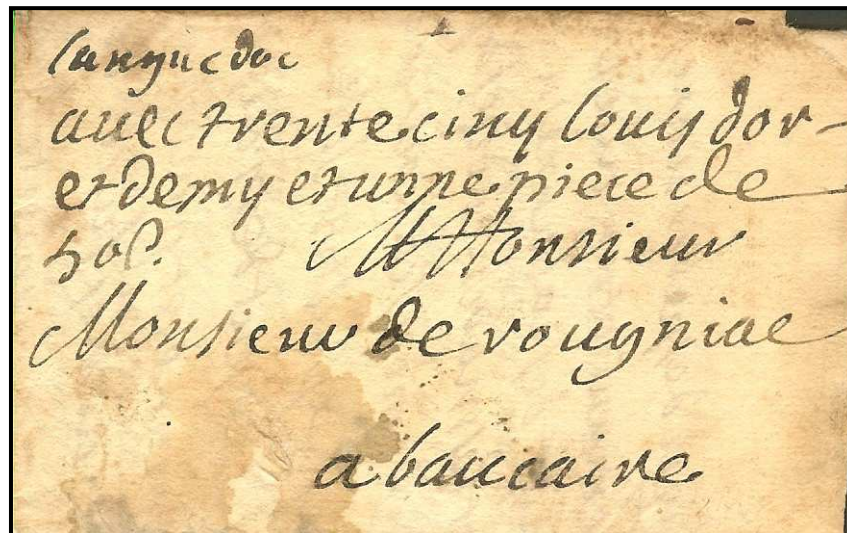 languedoc
avec trente cinq louis dor
et demy et unne piece de
50s. A Monsieur
Monsieur de rougniac
a baucaire